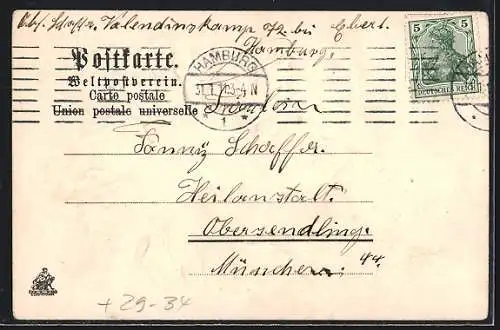 Valendinskamp 72 bei Ebert.
Hamburg.
Postkarte.
Weltpostverein.
Carte postale
Union postale universelle
HAMBURG
3-4 N
* 1 *
5 5
DEUTSCHES REICH
Fräulein
Fanny Schaffer.
Heilanstalt.
Obersendling.
München. 44.
+ 29-34